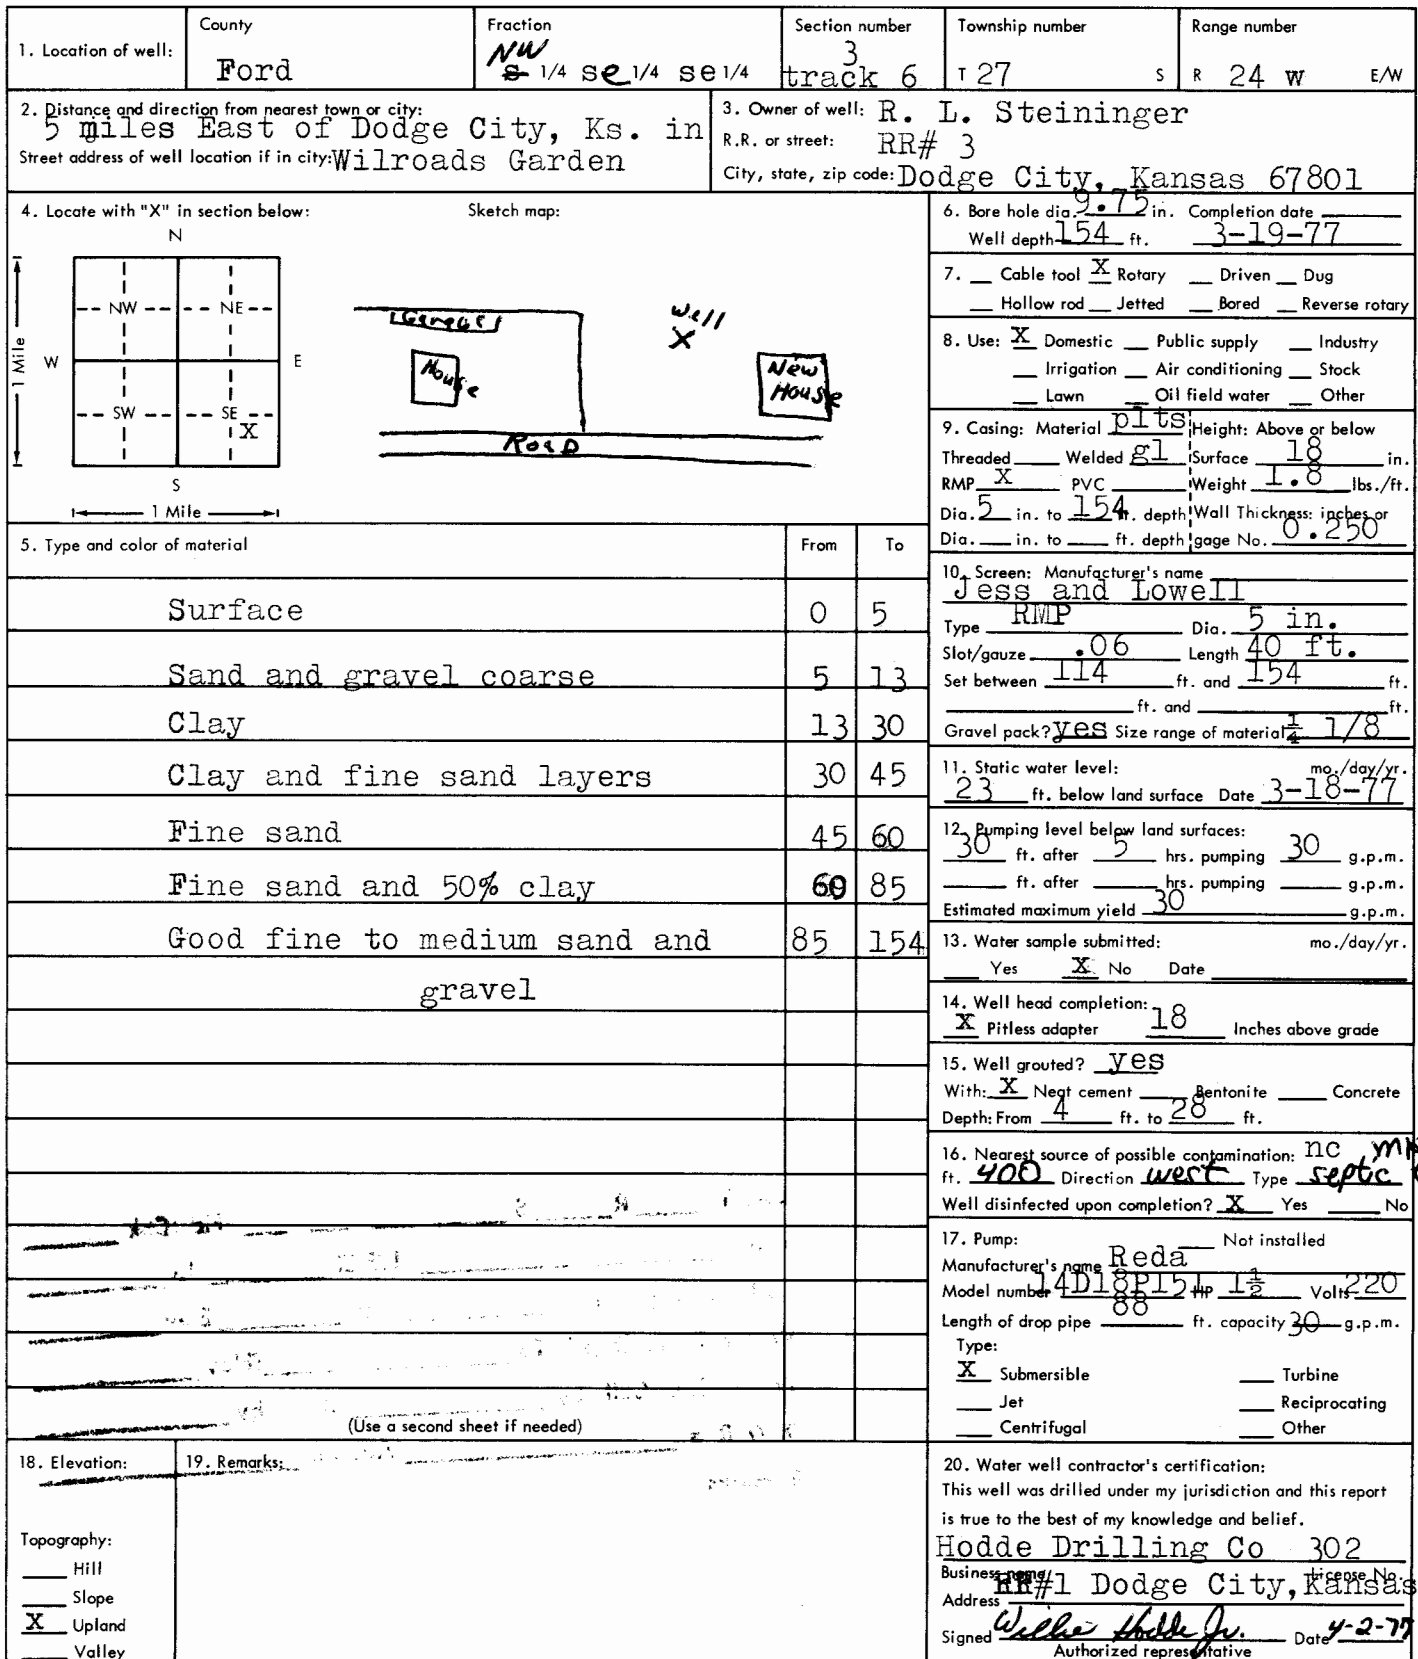 1. Location of well:
County
Ford
Fraction
NW
s 1/4 se 1/4 se 1/4
Section number
3
track 6
Township number
T 27 S
Range number
R 24 w E/W
2. Distance and direction from nearest town or city:
5 miles East of Dodge City, Ks. in
Street address of well location if in city: Wilroads Garden
3. Owner of well: R. L. Steininger
R.R. or street: RR# 3
City, state, zip code: Dodge City, Kansas 67801
4. Locate with "X" in section below:
Sketch map:
N
NW NE
W E
SW SE
X
S
1 Mile
1 Mile
Garage
House
Well
X
New
House
Road
5. Type and color of material From To
Surface 0 5
Sand and gravel coarse 5 13
Clay 13 30
Clay and fine sand layers 30 45
Fine sand 45 60
Fine sand and 50% clay 60 85
Good fine to medium sand and 85 154
gravel
(Use a second sheet if needed)
6. Bore hole dia. 9.75 in. Completion date
Well depth 154 ft. 3-19-77
7. __ Cable tool X Rotary __ Driven __ Dug
__ Hollow rod __ Jetted __ Bored __ Reverse rotary
8. Use: X Domestic __ Public supply __ Industry
__ Irrigation __ Air conditioning __ Stock
__ Lawn __ Oil field water __ Other
9. Casing: Material plts Height: Above or below
Threaded ___ Welded gl Surface 18 in.
RMP X PVC ___ Weight 1.8 lbs./ft.
Dia. 5 in. to 154 ft. depth Wall Thickness: inches or
Dia. __ in. to __ ft. depth gage No. 0.250
10. Screen: Manufacturer's name
Jess and Lowell
Type RMP Dia. 5 in.
Slot/gauze .06 Length 40 ft.
Set between 114 ft. and 154 ft.
ft. and ft.
Gravel pack? yes Size range of material 1/4 1/8
11. Static water level: mo./day/yr.
23 ft. below land surface Date 3-18-77
12. Pumping level below land surfaces:
30 ft. after 5 hrs. pumping 30 g.p.m.
ft. after hrs. pumping g.p.m.
Estimated maximum yield 30 g.p.m.
13. Water sample submitted: mo./day/yr.
__ Yes X No Date
14. Well head completion:
X Pitless adapter 18 Inches above grade
15. Well grouted? yes
With: X Neat cement __ Bentonite __ Concrete
Depth: From 4 ft. to 28 ft.
16. Nearest source of possible contamination: nc
ft. 400 Direction west Type septic
Well disinfected upon completion? X Yes __ No
17. Pump: __ Not installed
Manufacturer's name Reda
Model number 14D18P151 HP 1 1/2 Volts 220
Length of drop pipe 88 ft. capacity 30 g.p.m.
Type:
X Submersible __ Turbine
__ Jet __ Reciprocating
__ Centrifugal __ Other
18. Elevation:
Topography:
__ Hill
__ Slope
X Upland
__ Valley
19. Remarks:
20. Water well contractor's certification:
This well was drilled under my jurisdiction and this report
is true to the best of my knowledge and belief.
Hodde Drilling Co 302
Business name License No.
Address RR#1 Dodge City, Kansas
Signed Willie Hodde Jr. Date 4-2-77
Authorized representative